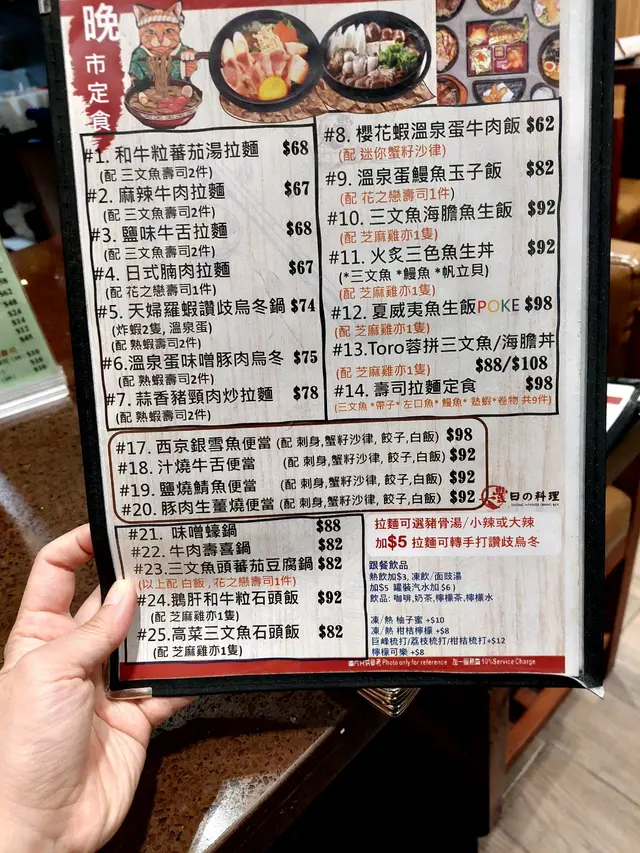 晚市定食
#1. 和牛粒蕃茄湯拉麵 $68
(配 三文魚壽司2件)
#2. 麻辣牛肉拉麵 $67
(配 三文魚壽司2件)
#3. 鹽味牛舌拉麵 $68
(配 三文魚壽司2件)
#4. 日式腩肉拉麵 $67
(配 花之戀壽司1件)
#5. 天婦羅蝦讚歧烏冬鍋 $74
(炸蝦2隻, 溫泉蛋)
(配 熟蝦壽司2件)
#6.溫泉蛋味噌豚肉烏冬 $75
(配 熟蝦壽司2件)
#7. 蒜香豬頸肉炒拉麵 $78
(配 熟蝦壽司2件)
#8. 櫻花蝦溫泉蛋牛肉飯 $62
(配 迷你蟹籽沙律)
#9. 溫泉蛋鰻魚玉子飯 $82
(配 花之戀壽司1件)
#10. 三文魚海膽魚生飯 $92
(配 芝麻雞亦1隻)
#11. 火炙三色魚生丼 $92
(*三文魚 *鰻魚 *帆立貝)
(配 芝麻雞亦1隻)
#12. 夏威夷魚生飯POKE $98
(配 芝麻雞亦1隻)
#13.Toro蓉拼三文魚/海膽丼
(配 芝麻雞亦1隻) $88/$108
#14. 壽司拉麵定食 $98
(三文魚*帶子*左口魚*鰻魚*熟蝦*卷物 共9件)
#17. 西京銀雪魚便當 (配 刺身,蟹籽沙律, 餃子,白飯) $98
#18. 汁燒牛舌便當 (配 刺身,蟹籽沙律, 餃子,白飯) $92
#19. 鹽燒鯖魚便當 (配 刺身,蟹籽沙律, 餃子,白飯) $92
#20. 豚肉生薑燒便當 (配 刺身,蟹籽沙律, 餃子,白飯) $92
日の料理
#21. 味噌蠔鍋 $88
#22. 牛肉壽喜鍋 $82
#23.三文魚頭蕃茄豆腐鍋 $82
(以上配 白飯 , 花之戀壽司1件)
#24.鵝肝和牛粒石頭飯 $92
(配 芝麻雞亦1隻)
#25.高菜三文魚石頭飯 $82
(配 芝麻雞亦1隻)
拉麵可選豬骨湯/小辣或大辣
加$5 拉麵可轉手打讚歧烏冬
跟餐飲品
熱飲加$3, 凍飲/面豉湯
加$5 罐裝汽水加$6 )
飲品: 咖啡,奶茶,檸檬茶,檸檬水
凍/熱 柚子蜜 +$10
凍/熱 柑桔檸檬 +$8
巨峰梳打/荔枝梳打/柑桔梳打+$12
檸檬可樂 +$8
圖片只供參考 Photo only for reference 加一服務費 10%Service Charge